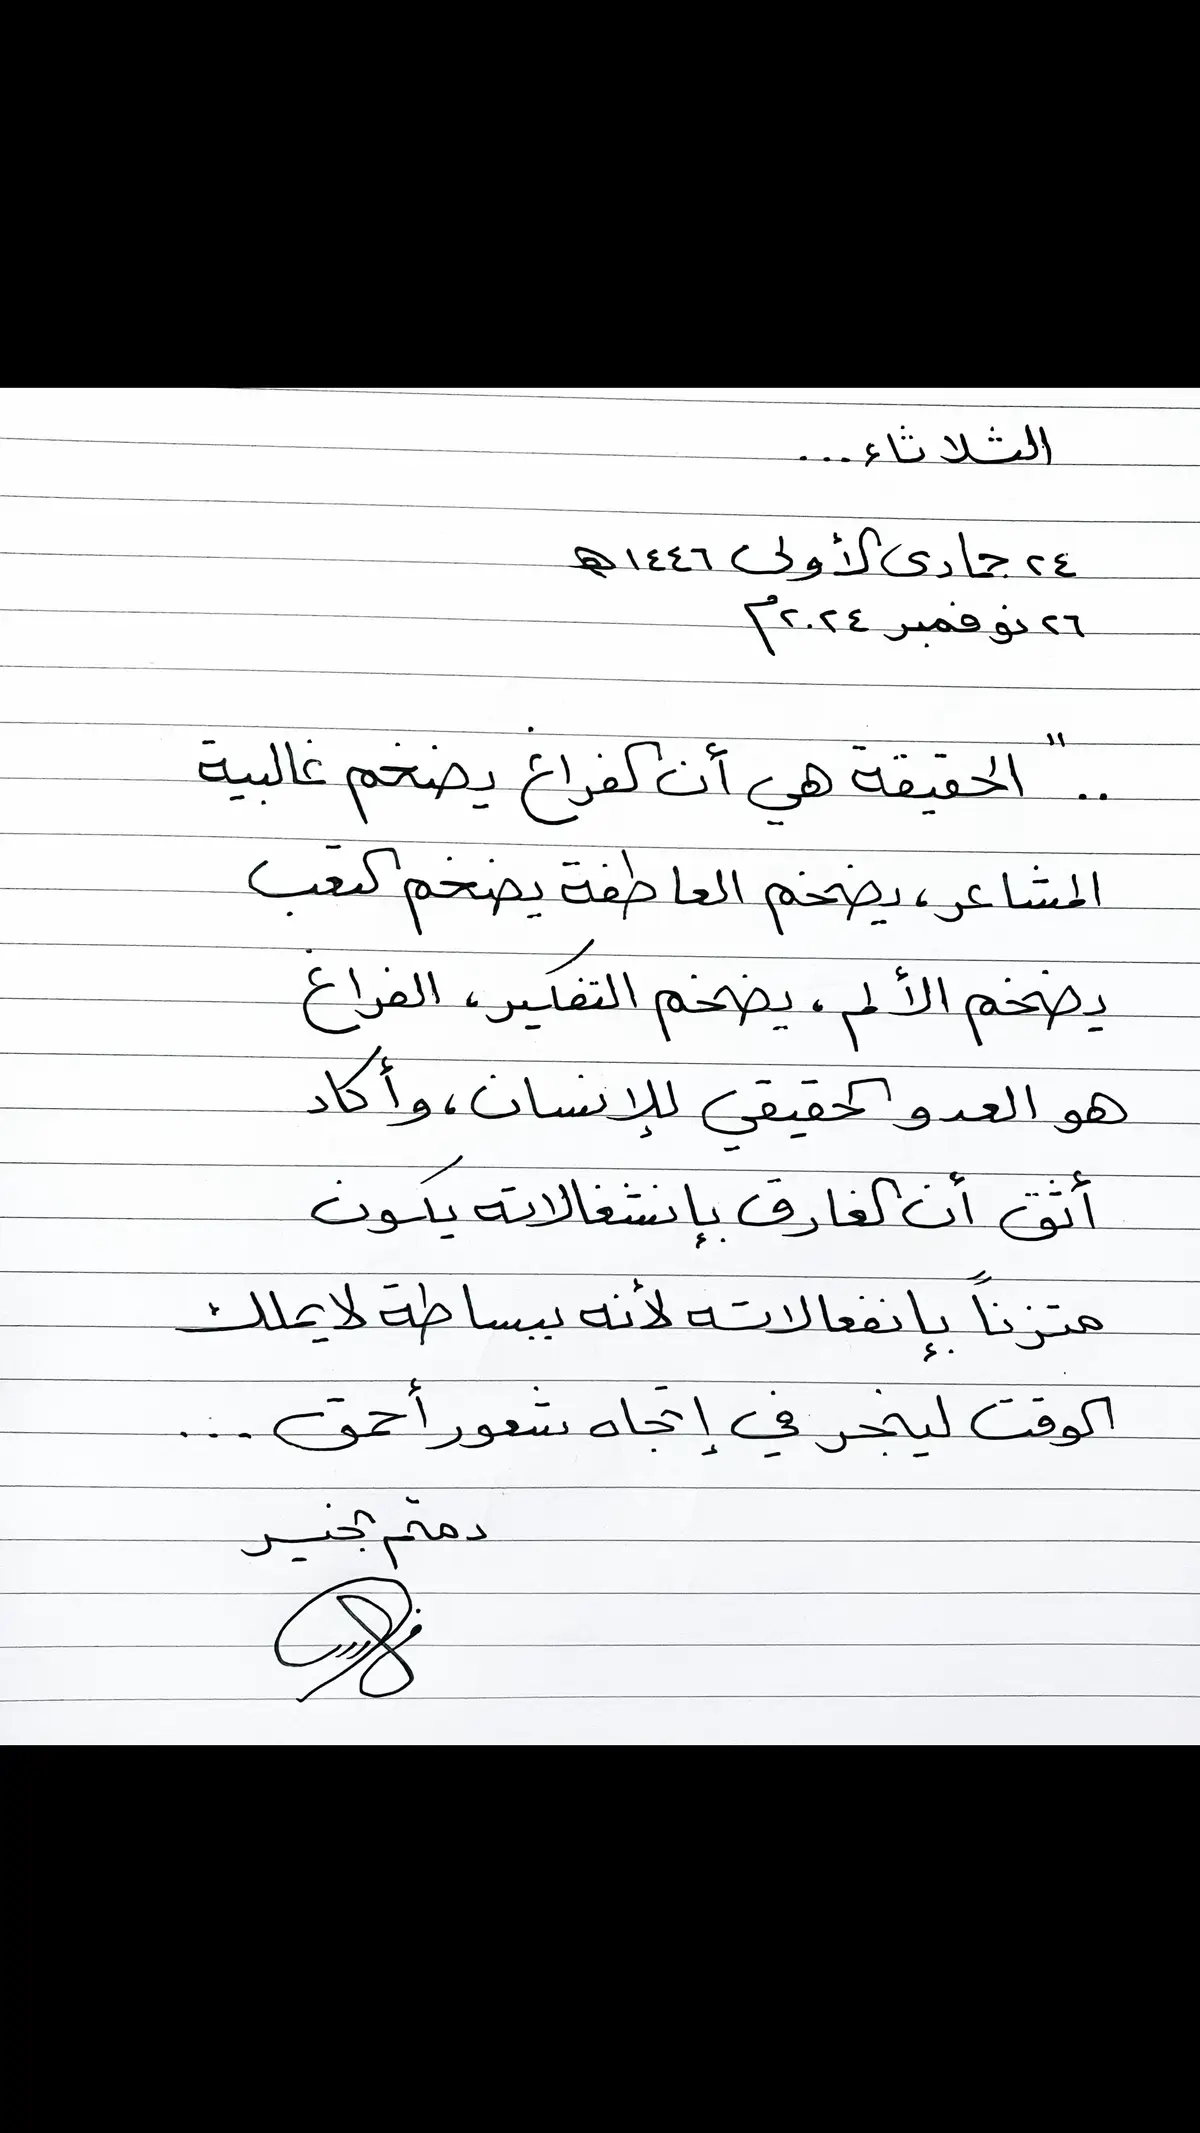 الثلاثاء...
٢٤ جمادى الأولى ١٤٤٦هـ
٢٦ نوفمبر ٢٠٢٤م
.." الحقيقة هي أن الفراغ يضخم غالبية
المشاعر، يضخم العاطفة يضخم التعب
يضخم الألم، يضخم التفكير، الفراغ
هو العدو الحقيقي للإنسان، وأكاد
أثق أن الغارق بإنشغالاته يكون
متزناً بإنفعالاته لأنه ببساطة لا يملك
الوقت لينجر في إتجاه شعور أحمق ...
دمتم بخير